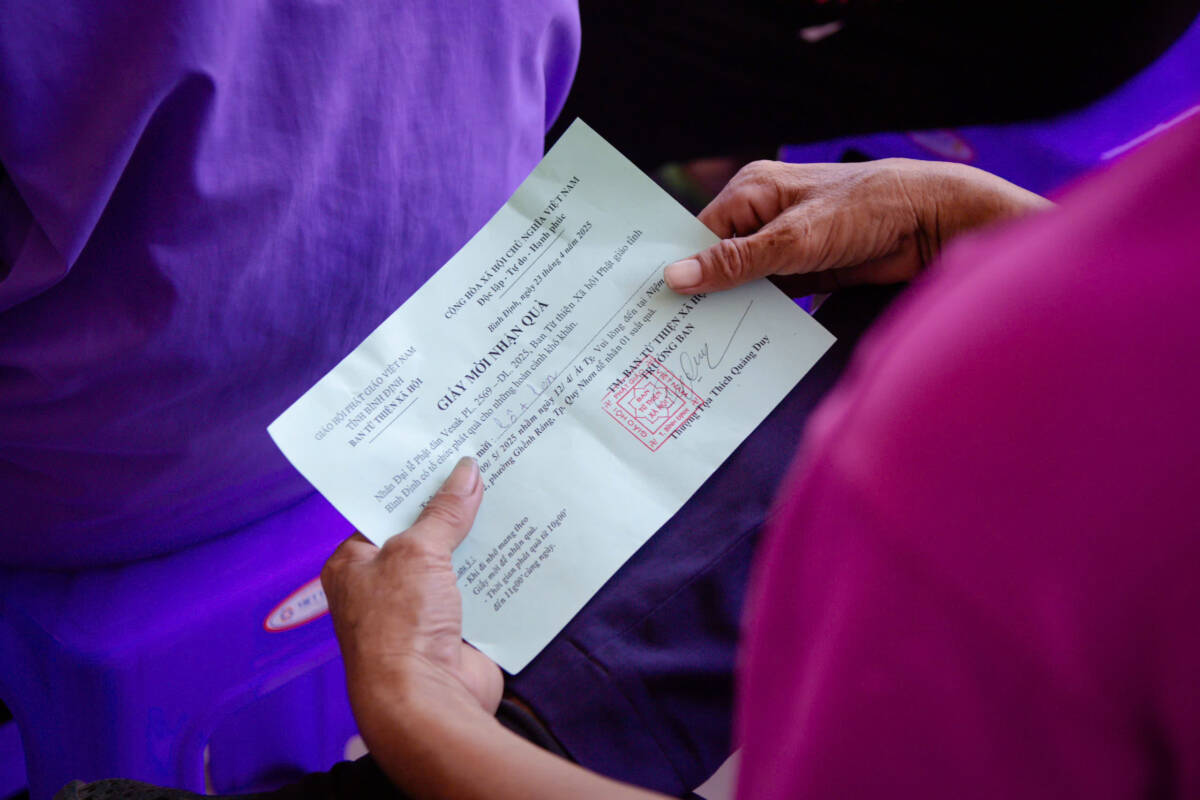 GIÁO HỘI PHẬT GIÁO VIỆT NAM
TỈNH BÌNH ĐỊNH
BAN TỪ THIỆN XÃ HỘI
CỘNG HÒA XÃ HỘI CHỦ NGHĨA VIỆT NAM
Độc lập - Tự do - Hạnh phúc
Bình Định, ngày 23 tháng 4 năm 2025
GIẤY MỜI NHẬN QUÀ
Nhân Đại lễ Phật đản Vesak PL. 2569 –DL. 2025, Ban Từ thiện Xã hội Phật giáo tỉnh
Bình Định có tổ chức phát quà cho những hoàn cảnh khó khăn.
mời :
09/ 5/ 2025 nhằm ngày 12/ 4/ Ất Tỵ. Vui lòng đến tại Niệm
phường Ghềnh Ráng, Tp. Quy Nhơn để nhận 01 suất quà.
- Khi đi nhớ mang theo
Giấy mời để nhận quà.
- Thời gian phát quà từ 10g00'
đến 11g00' cùng ngày.
TM. BAN TỪ THIỆN XÃ
TRƯỞNG BAN
GIÁO HỘI PHẬT GIÁO VIỆT NAM
BAN
TỪ THIỆN
XÃ HỘI
T. BÌNH ĐỊNH
Thượng Tọa Thích Quảng Duy